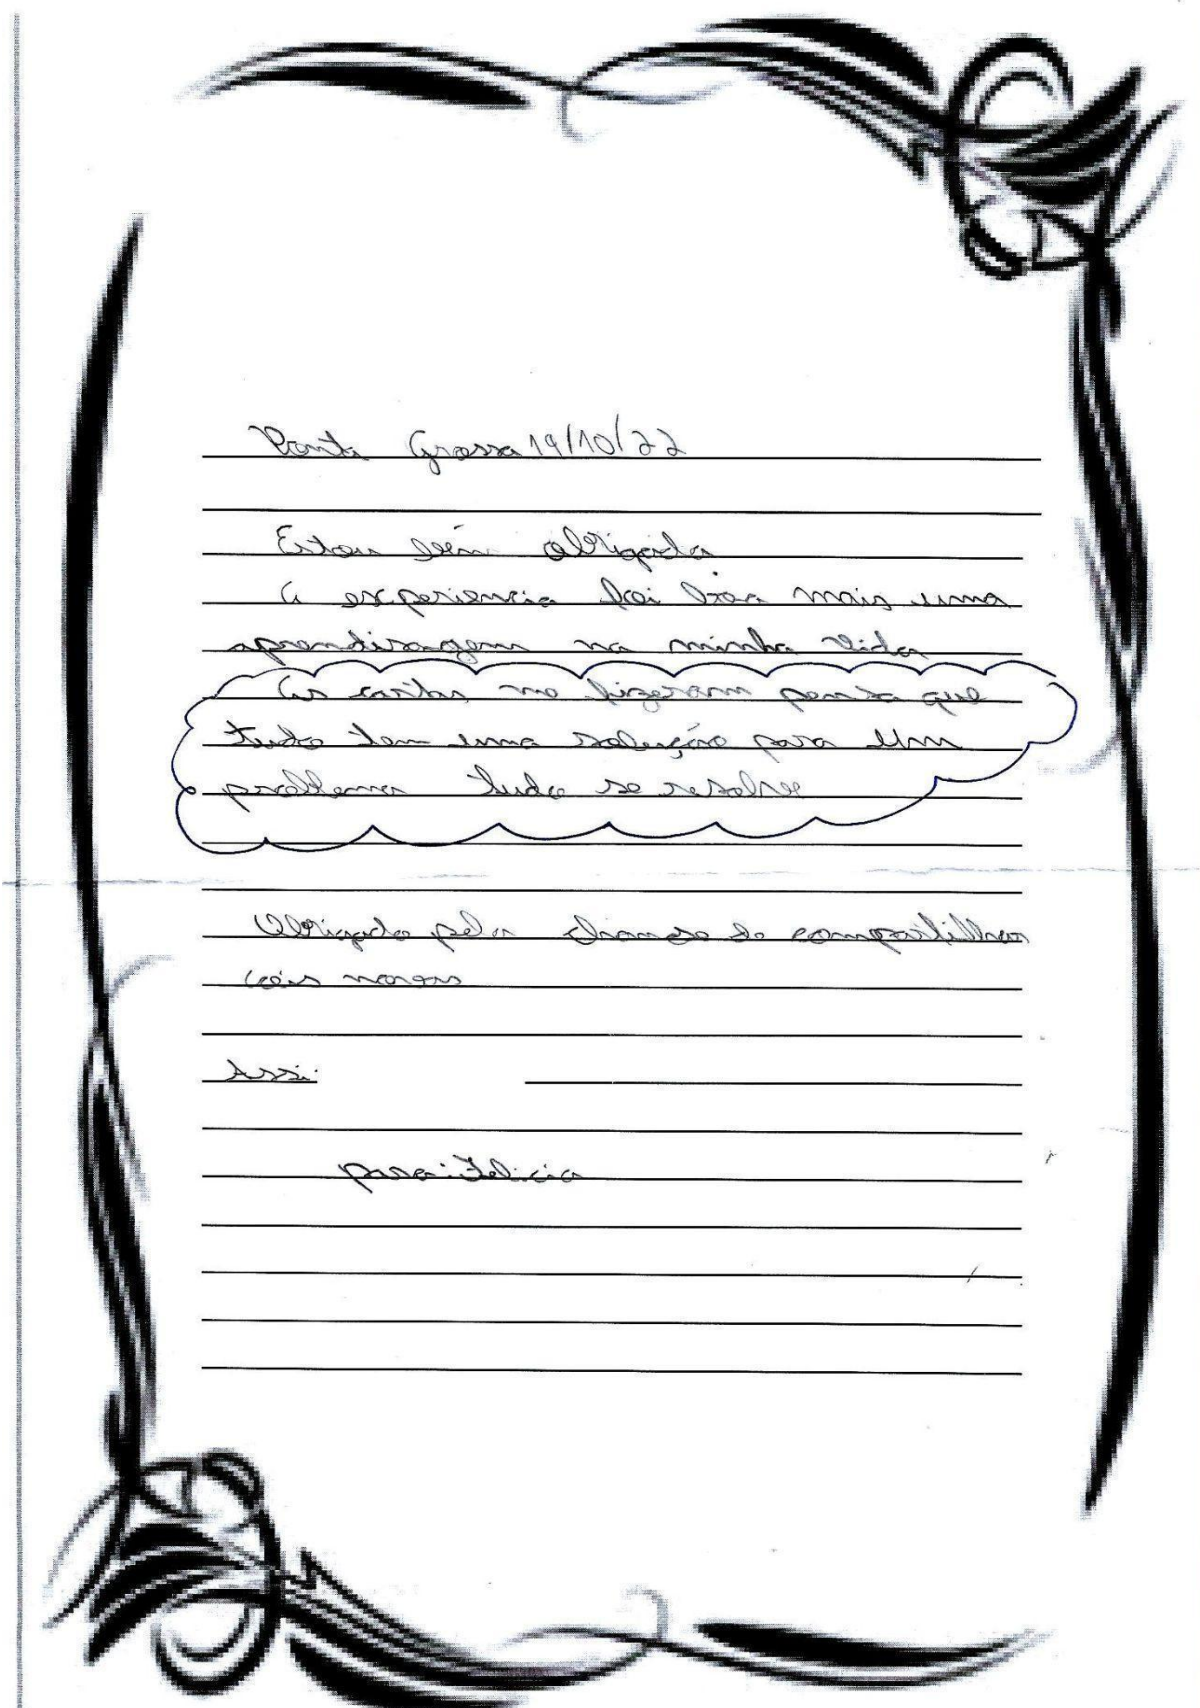 Ponta Grossa 19/10/22
Estou bem obrigada
A experiencia foi boa mais uma
aprendisagem na minha vida
As cartas me fizeram pensa que
tudo tem uma solução para um
problema tudo se resolve
Obrigado pela chanse de compartilhar
Assi:
para: Felicia